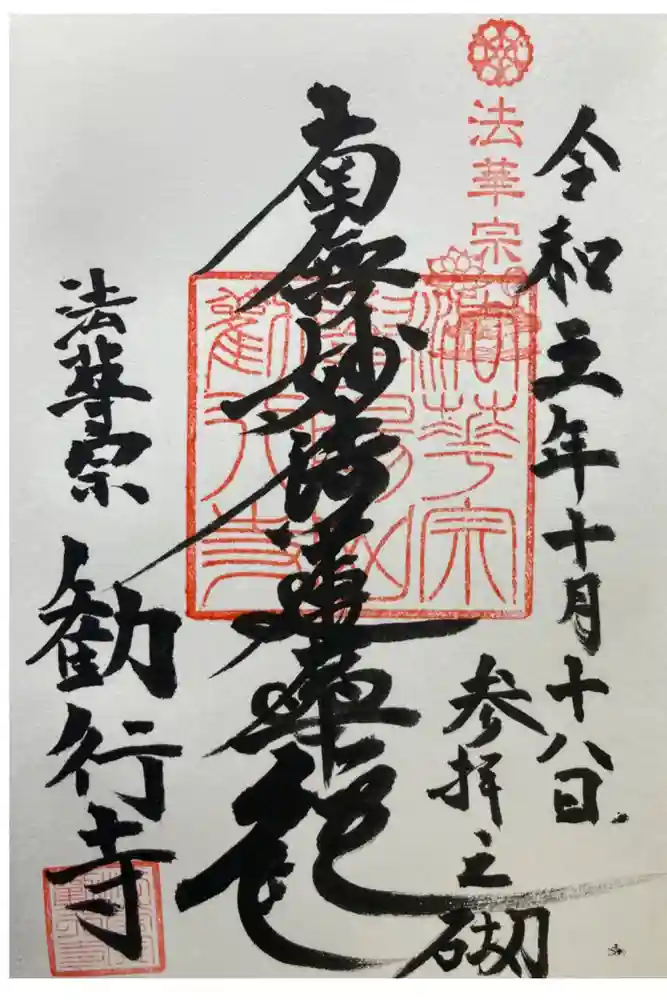 令和五年十月十八日
参拝之砌
法華宗
法華宗
勸行寺
南無妙法蓮華経
法華宗
勧行寺